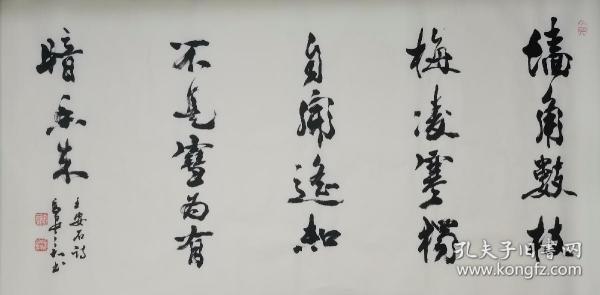 墙角數枝
梅凌寒獨
自開遥知
不是雪為有
暗香来
王安石詩
孔夫子旧书网
www.kongfz.com